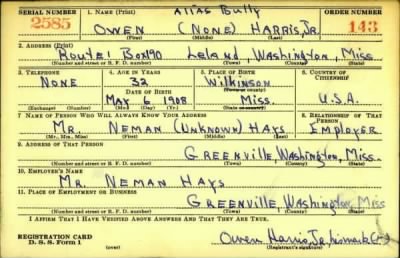 SERIAL NUMBER 1. NAME (Print) Alias Bully ORDER NUMBER
2585 OWEN (NONE) HARRIS, JR. 143
(First) (Middle) (Last)
2. ADDRESS (Print)
Route 1 Box 190 Leland, Washington, Miss.
(Number and street or R. F. D. number) (Town) (County) (State)
3. TELEPHONE 4. AGE IN YEARS 5. PLACE OF BIRTH 6. COUNTRY OF CITIZENSHIP
NONE 32 Wilkinson
DATE OF BIRTH (Town or county)
MAY 6 1908 Miss. U.S.A.
(Exchange) (Number) (Mo.) (Day) (Yr.) (State or country)
7. NAME OF PERSON WHO WILL ALWAYS KNOW YOUR ADDRESS 8. RELATIONSHIP OF THAT PERSON
Mr. NEMAN (UNKNOWN) HAYS EMPLOYER
(Mr., Mrs., Miss) (First) (Middle) (Last)
9. ADDRESS OF THAT PERSON
GREENVILLE, Washington, Miss.
(Number and street or R. F. D. number) (Town) (County) (State)
10. EMPLOYER'S NAME
Mr. NEMAN HAYS
11. PLACE OF EMPLOYMENT OR BUSINESS
GREENVILLE, Washington, Miss
(Number and street or R. F. D. number) (Town) (County) (State)
I AFFIRM THAT I HAVE VERIFIED ABOVE ANSWERS AND THAT THEY ARE TRUE.
REGISTRATION CARD
D. S. S. Form 1 (over) Owen Harris, Jr. his mark
(Registrant's signature)